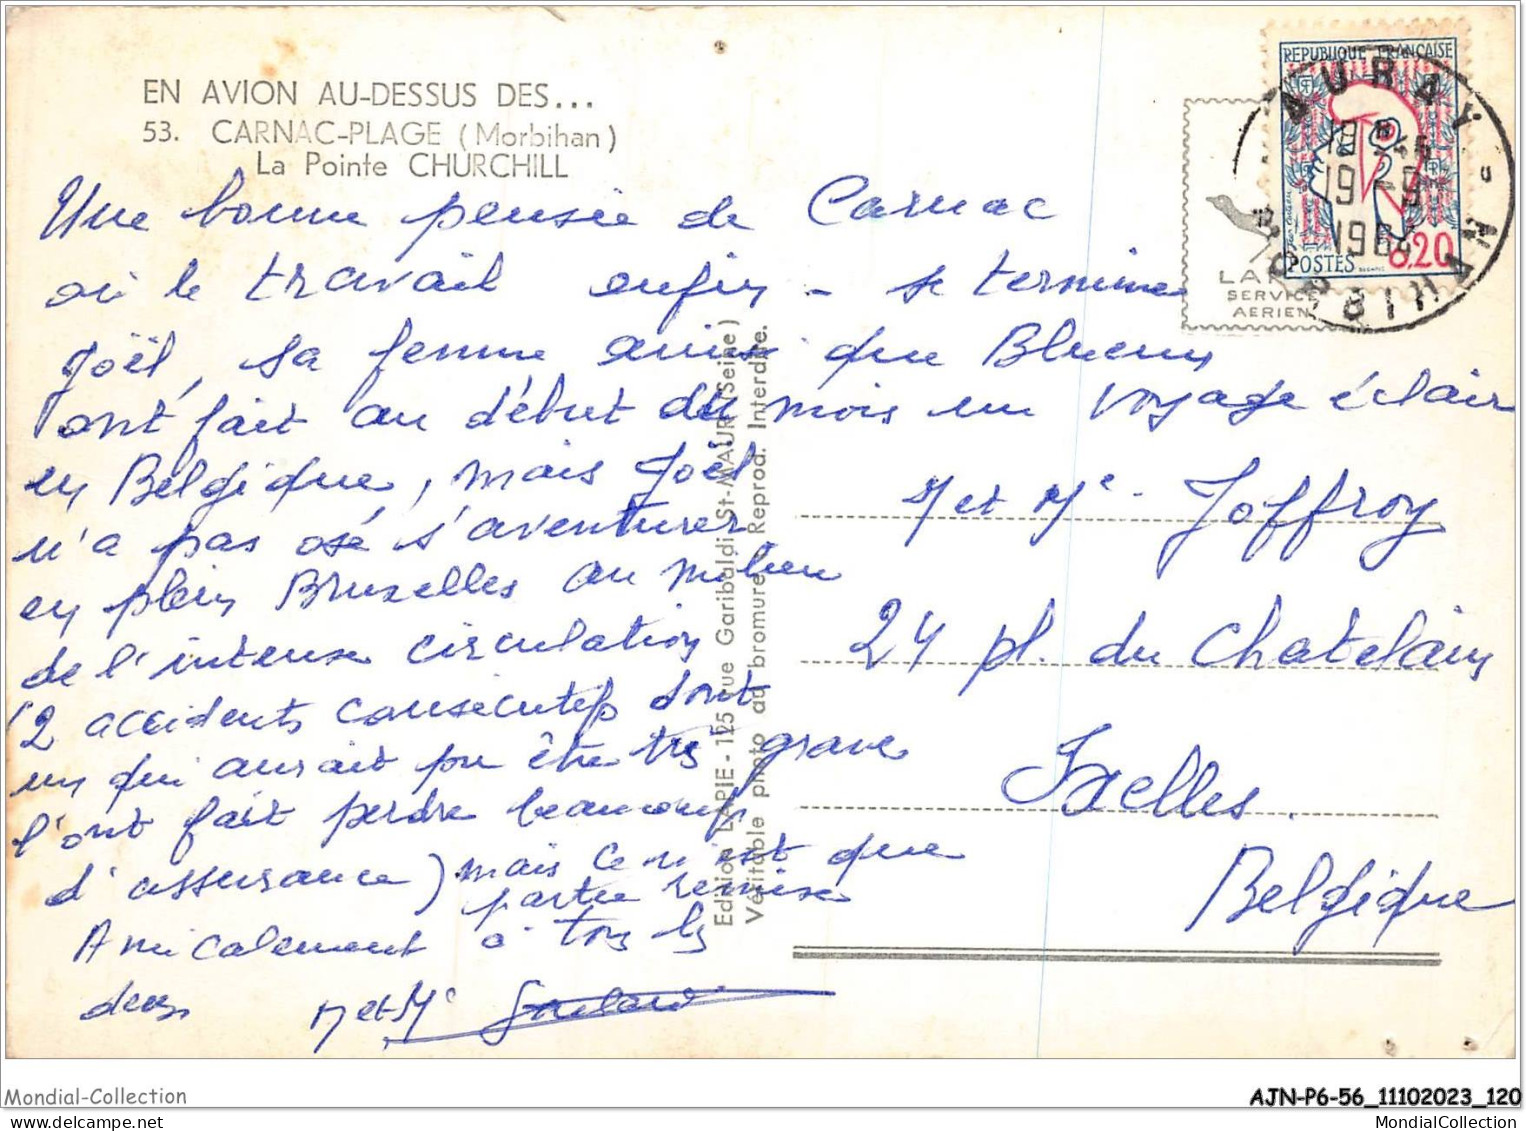 EN AVION AU-DESSUS DES...
53. CARNAC-PLAGE (Morbihan)
La Pointe CHURCHILL
Une bonne pensée de Carnac
où le travail enfin - se termine
Joël, sa femme ainsi que
ont fait au début du mois un voyage éclair
en Belgique, mais Joël
n'a pas osé s'aventurer
en plein Bruxelles au milieu
de l'intense circulation
(2 accidents consécutifs dont
un qui aurait pu être très grave
l'ont fait perdre beaucoup
d'assurance) mais ce n'est que
partie remise
Amicalement à tous les
deux
M et Me
Edition LAPIE - 125 rue Garibaldi St-MAUR (Seine)
Véritable photo au bromure. Reprod. Interdite.
REPUBLIQUE FRANÇAISE
POSTES
0.20
AURAY
MORBIHAN
19 -9
LA
SERVICE
AERIEN
M et Me. Joffroy
24 pl. du Chatelain
Ixelles.
Belgique
Mondial-Collection
AJN-P6-56_11102023_120
MondialCollection